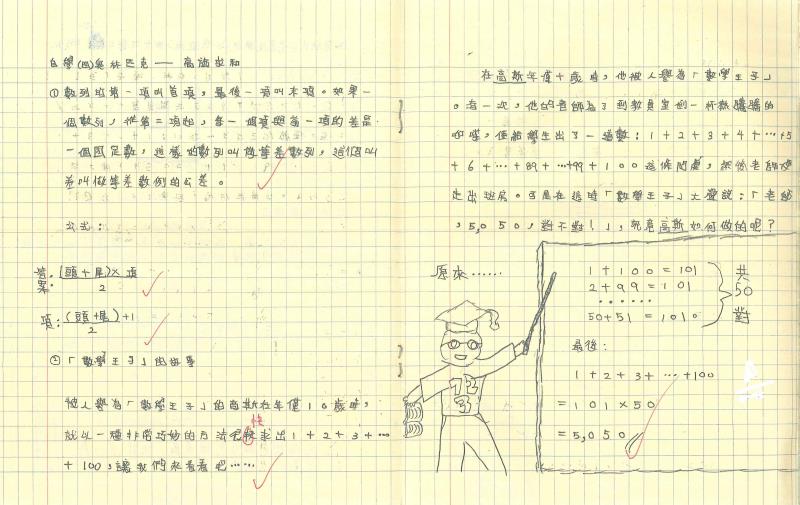 自學(四)奧林匹克——高斯求和
①數列的第一項叫首項,最後一項叫末項。如果一
個數列,從第二項起,每一個項與前一項的差是
一個固定數,這樣的數列叫做等差數列,這個叫
差叫做等差數例的公差。
公式:
答案:(頭+尾)×項
2
項:(頭+尾)+1
2
②「數學王子」的故事
被人譽為「數學王子」的高斯在年僅10歲時,
就以一種非常巧妙的方法 快 求出1+2+3+…
+100,讓我們來看看吧……
在高斯年僅十歲時,他被人譽為「數學王子」
。有一次,他的老師為了到教員室倒一杯熱騰騰的
咖啡,便給學生出了一道數:1+2+3+4+…+5
+6+…+89+…+99+100這條問題,然後老師便
走出班房。可是在這時「數學王子」大聲說:「老師
,5,050,對不對!」,究竟高斯如何做的呢?
原來……
1+100=101
2+99=101
……
50+51=1010
共50對
最後:
1+2+3+…+100
=101×50
=5,050